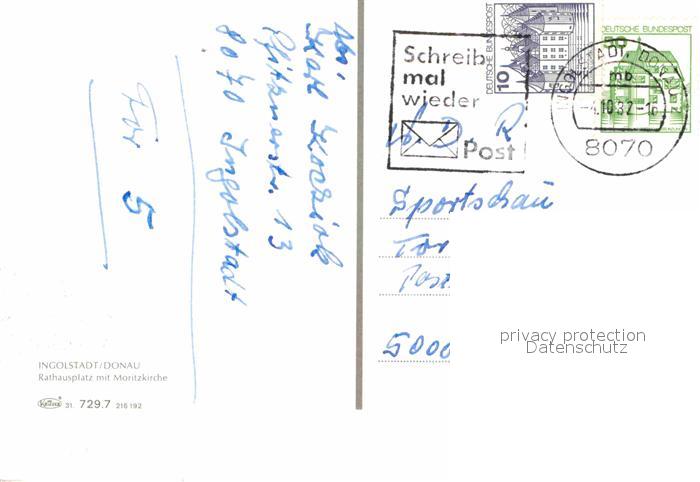 Abs.
Karl Kozziok
Pfitznerstr. 13
8070 Ingolstadt
Tor 5
INGOLSTADT/DONAU
Rathausplatz mit Moritzkirche
Krüger 31. 729.7 216 192
Schreib
mal
wieder
Post
DEUTSCHE BUNDESPOST
10
DEUTSCHE BUNDESPOST
50
INGOLSTADT, DONAU 1
mb
-4.10.82-16
8070
W. D. R.
Sportschau
Tor
Post
5000
privacy protection
Datenschutz